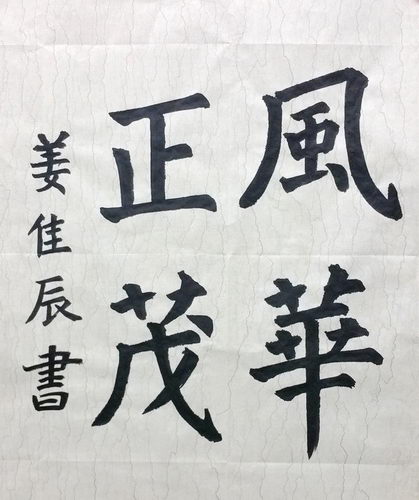 風華
正茂
姜佳辰書